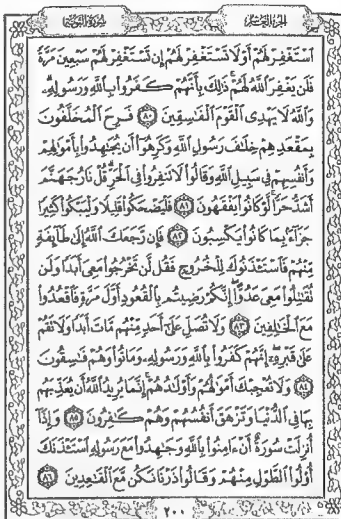 الجزء العاشر
سورة التوبة
اسْتَغْفِرْ لَهُمْ أَوْ لَا تَسْتَغْفِرْ لَهُمْ إِن تَسْتَغْفِرْ لَهُمْ سَبْعِينَ مَرَّةً
فَلَن يَغْفِرَ اللَّهُ لَهُمْ ذَٰلِكَ بِأَنَّهُمْ كَفَرُوا بِاللَّهِ وَرَسُولِهِ
وَاللَّهُ لَا يَهْدِي الْقَوْمَ الْفَاسِقِينَ ﴿٨٠﴾ فَرِحَ الْمُخَلَّفُونَ
بِمَقْعَدِهِمْ خِلَافَ رَسُولِ اللَّهِ وَكَرِهُوا أَن يُجَاهِدُوا بِأَمْوَالِهِمْ
وَأَنفُسِهِمْ فِي سَبِيلِ اللَّهِ وَقَالُوا لَا تَنفِرُوا فِي الْحَرِّ قُلْ نَارُ جَهَنَّمَ
أَشَدُّ حَرًّا لَّوْ كَانُوا يَفْقَهُونَ ﴿٨١﴾ فَلْيَضْحَكُوا قَلِيلًا وَلْيَبْكُوا كَثِيرًا
جَزَاءً بِمَا كَانُوا يَكْسِبُونَ ﴿٨٢﴾ فَإِن رَّجَعَكَ اللَّهُ إِلَىٰ طَائِفَةٍ
مِّنْهُمْ فَاسْتَأْذَنُوكَ لِلْخُرُوجِ فَقُل لَّن تَخْرُجُوا مَعِيَ أَبَدًا وَلَن
تُقَاتِلُوا مَعِيَ عَدُوًّا إِنَّكُمْ رَضِيتُم بِالْقُعُودِ أَوَّلَ مَرَّةٍ فَاقْعُدُوا
مَعَ الْخَالِفِينَ ﴿٨٣﴾ وَلَا تُصَلِّ عَلَىٰ أَحَدٍ مِّنْهُم مَّاتَ أَبَدًا وَلَا تَقُمْ
عَلَىٰ قَبْرِهِ إِنَّهُمْ كَفَرُوا بِاللَّهِ وَرَسُولِهِ وَمَاتُوا وَهُمْ فَاسِقُونَ
﴿٨٤﴾ وَلَا تُعْجِبْكَ أَمْوَالُهُمْ وَأَوْلَادُهُمْ إِنَّمَا يُرِيدُ اللَّهُ أَن يُعَذِّبَهُم
بِهَا فِي الدُّنْيَا وَتَزْهَقَ أَنفُسُهُمْ وَهُمْ كَافِرُونَ ﴿٨٥﴾ وَإِذَا
أُنزِلَتْ سُورَةٌ أَنْ آمِنُوا بِاللَّهِ وَجَاهِدُوا مَعَ رَسُولِهِ اسْتَأْذَنَكَ
أُولُو الطَّوْلِ مِنْهُمْ وَقَالُوا ذَرْنَا نَكُن مَّعَ الْقَاعِدِينَ ﴿٨٦﴾
٢٠٠